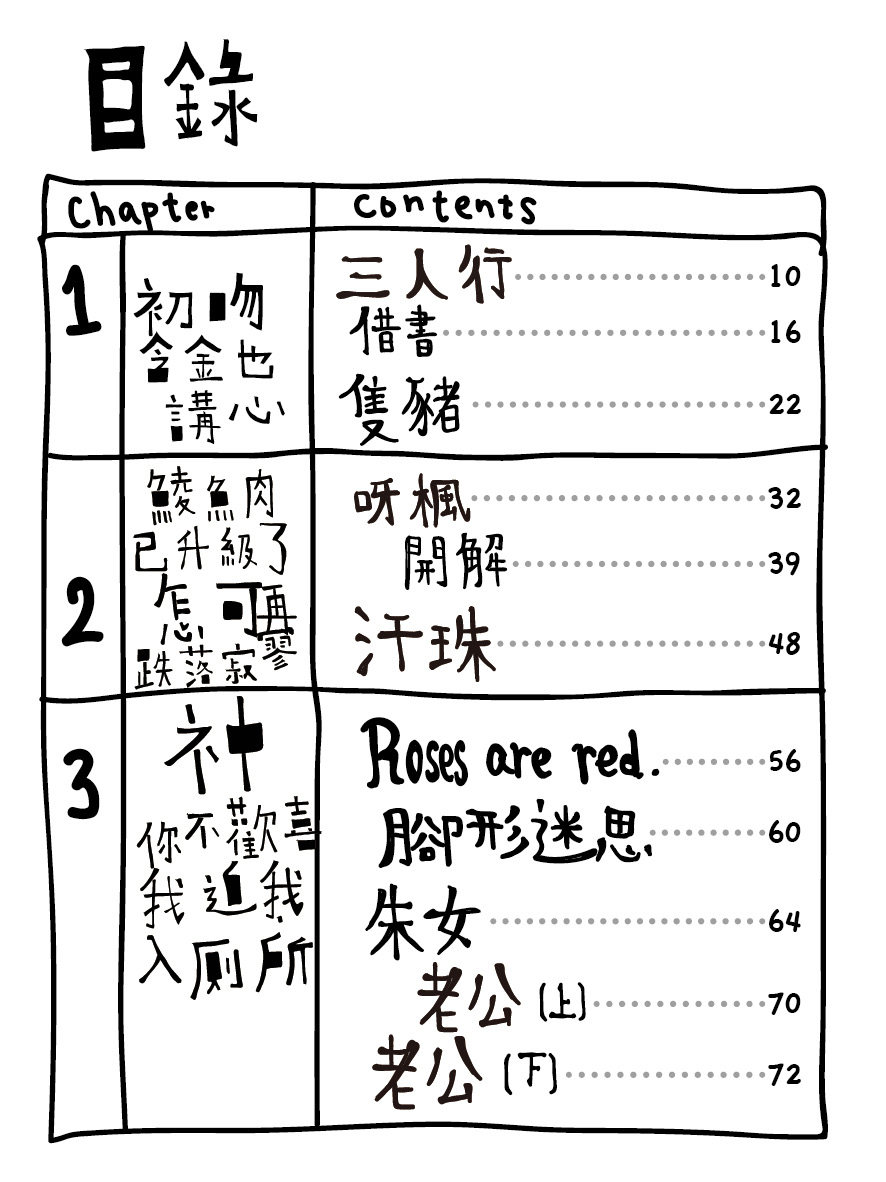 目錄
Chapter Contents
1
初吻
含金也
講心
三人行 10
借書 16
隻豬 22
2
鯪魚肉
已升級了
怎可再
跌落寂寥
呀楓 32
開解 39
汗珠 48
3
神
你不歡喜
我追我
入厠所
Roses are red. 56
腳形迷思 60
朱女 64
老公(上) 70
老公(下) 72